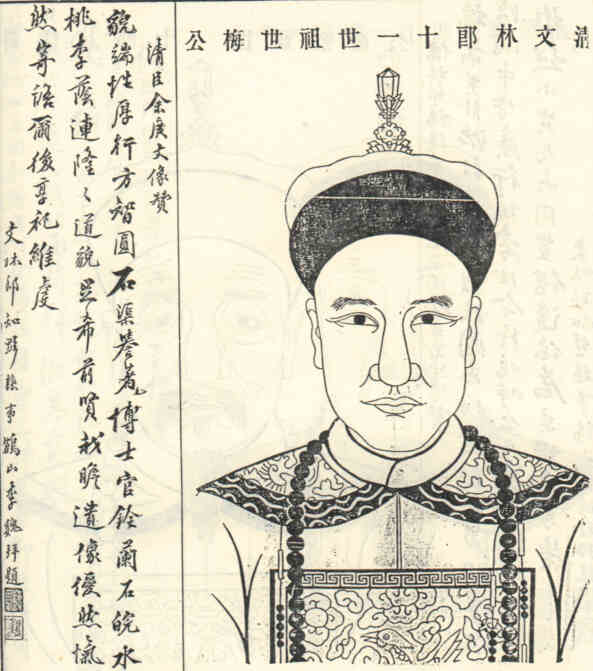 清文林郎十一世祖世梅公
清臣余廣文像贊
貌端性厚行方智圓石渠譽著博士官銓蘭石皖水
桃李蔭連隆々道貌思希前賢我瞻遺像僾然愾
然寄語爾後享祀維虔
文林郎知縣事鶴山李拜題